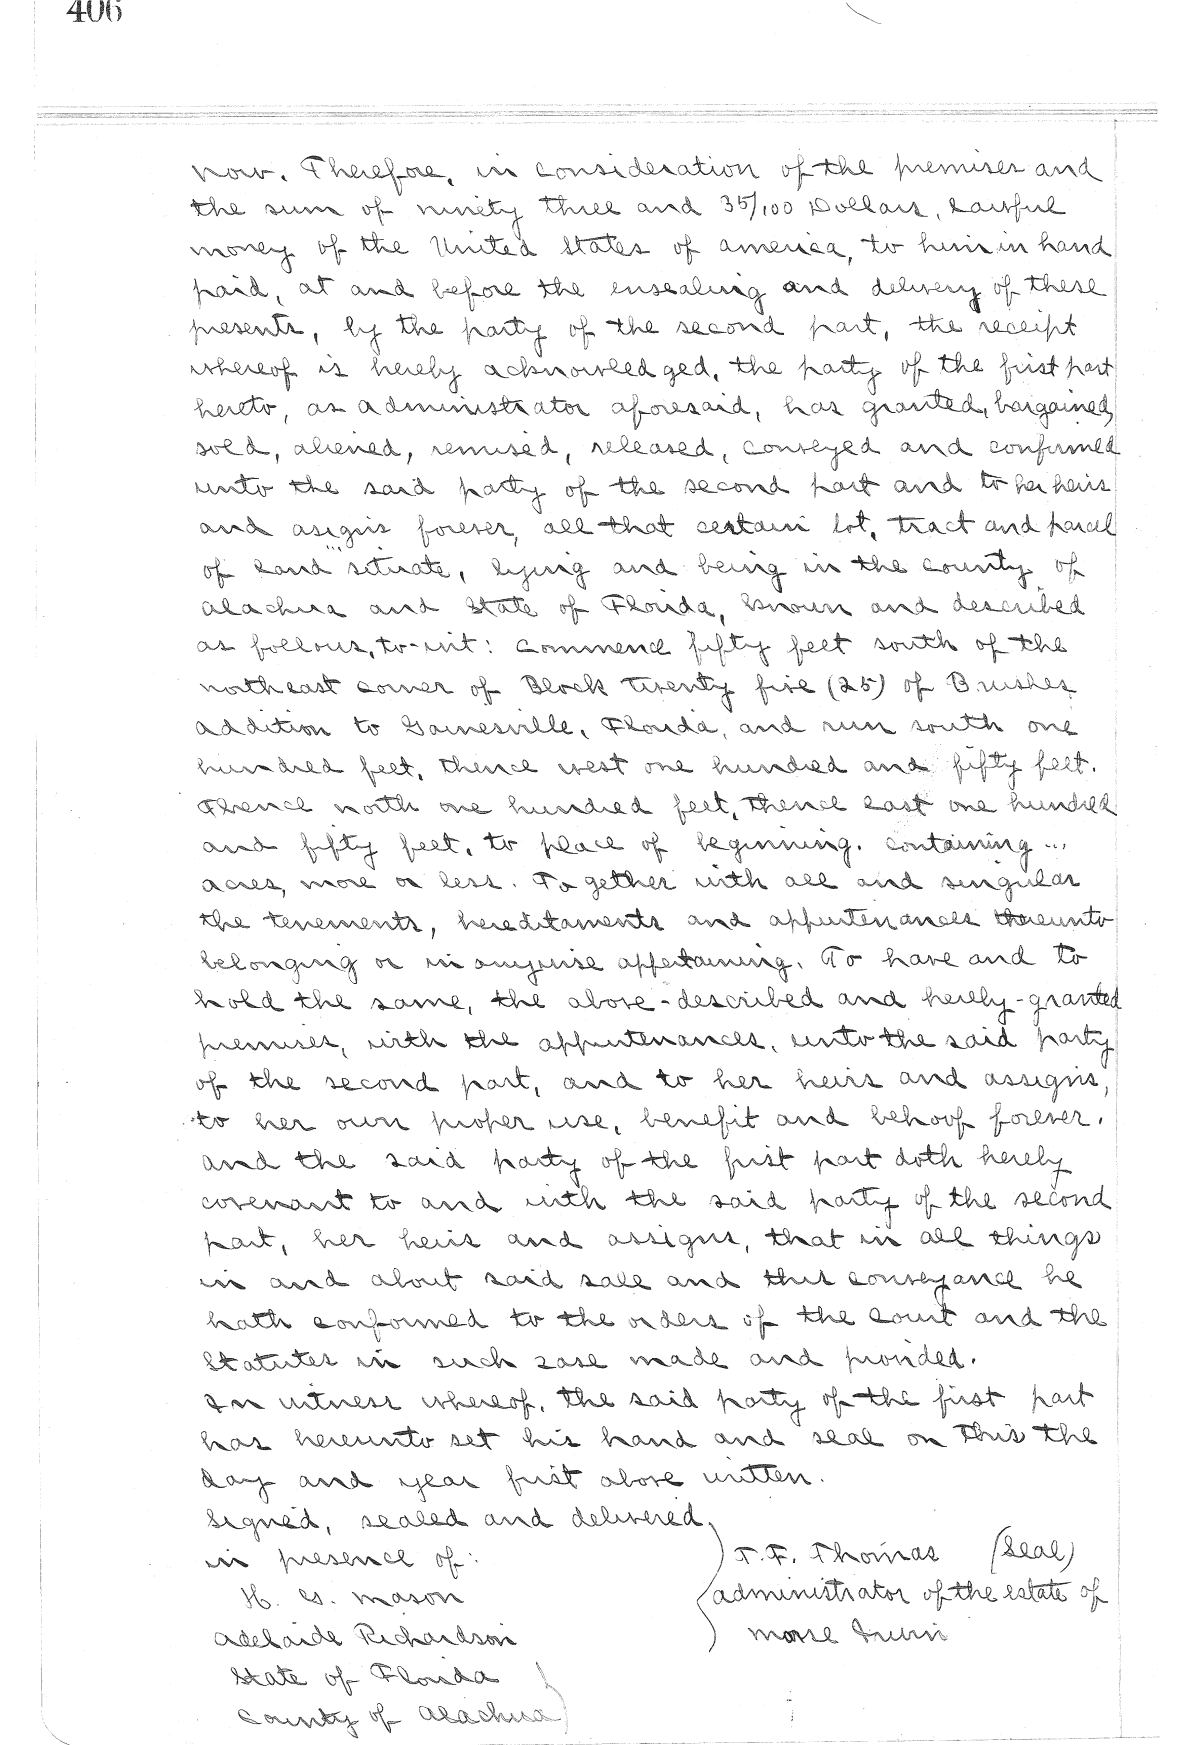 406
Now. Therefore, in consideration of the premises and
the sum of ninety three and 35/100 Dollars, Lawful
money of the United States of america, to him in hand
paid, at and before the ensealing and delivery of these
presents, by the party of the second part, the receipt
whereof is hereby acknowledged, the party of the first part
hereto, as administrator aforesaid, has granted, bargained,
sold, aliened, remised, released, conveyed and confirmed
unto the said party of the second part and to her heirs
and asigns forever, all that certain lot, tract and parcel
of Land situate, lying and being in the County of
Alachua and State of Florida, known and described
as follows, to-wit: Commence fifty feet south of the
northeast corner of Block twenty five (25) of Brushes
addition to Gainesville, Florida, and run south one
hundred feet, thence west one hundred and fifty feet.
Thence north one hundred feet, thence East one hundred
and fifty feet, to place of beginning. Containing ...
acres, more or less. Together with all and singular
the tenements, hereditaments and appurtenances thereunto
belonging or in anywise appertaining. To have and to
hold the same, the above-described and hereby-granted
premises, with the appurtenances, unto the said party
of the second part, and to her heirs and assigns,
to her own proper use, benefit and behoof forever.
and the said party of the first part doth hereby
covenant to and with the said party of the second
part, her heirs and assigns, that in all things
in and about said sale and this conveyance he
hath conformed to the orders of the Court and the
Statutes in such case made and provided.
In witness whereof, the said party of the first part
has hereunto set his hand and seal on this the
day and year first above written.
Signed, sealed and delivered
in presence of:
T. F. Thomas (Seal)
H. G. Mason
administrator of the estate of
Adelaide Richardson
Mose Irvin
State of Florida
County of Alachua